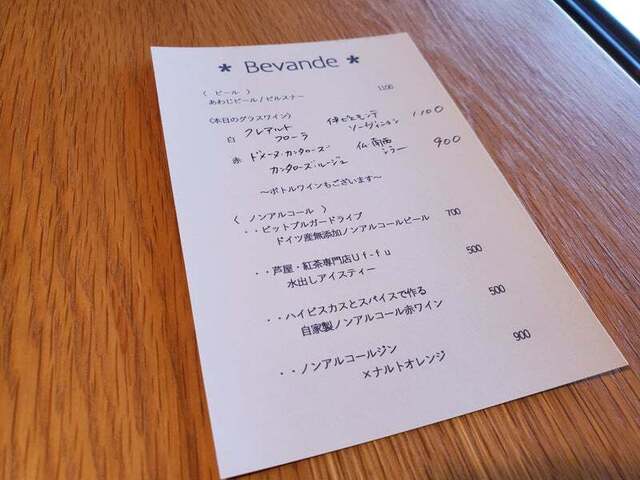 * Bevande *
〈 ビール 〉
あわじビール/ピルスナー 1100
〈本日のグラスワイン〉
白 クレアルト 伊ピエモンテ 1100
フローラ ソーヴィニヨン
赤 ドメーヌ・カンタローズ 仏南西 900
カンタローズ・ルージュ シラー
～ボトルワインもございます～
〈 ノンアルコール 〉
・・ピットブルガードライブ 700
ドイツ産無添加ノンアルコールビール
・・芦屋・紅茶専門店Uf-fu 500
水出しアイスティー
・・ハイビスカスとスパイスで作る 500
自家製ノンアルコール赤ワイン
・・ノンアルコールジン 900
×ナルトオレンジ